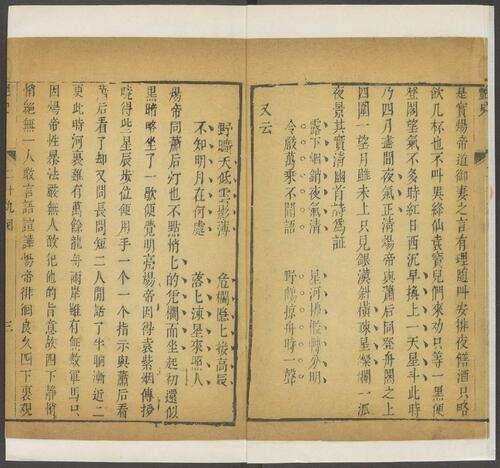 艷史
是實煬帝道御妻之言有理隨叫安排夜膳酒只略
飲几杯也不叫吳絳仙袁寶兒們來勸只等一黑便
登閣望氣不多時紅日西沉早換上一天星斗此時
乃四月盡間夜氣正清煬帝與蕭后同登舟閣之上
四圍一望月雖未上只見銀漢斜橫疎星燦爛一派
夜景其實清幽有詩為証
露下烟銷夜氣清 星河掛檻轉分明
令嚴萬乘不聞語 野鶴掠舟時一聲
又云
野曠天低雲影薄 危欄隱匕接高辰
不知明月在何處 落匕疎星來照人
煬帝同蕭后灯也不點悄匕的凭欄而坐起初還似
黑暗略坐了一歇便覺明亮煬帝因得袁紫烟傳授
曉得些星辰步位便用手一个一个指示與蕭后看
蕭后看了却又問長問短二人閒話了半晌漸近二
更此時河裏雖有萬餘龍舟兩岸雖有無數軍馬只
因煬帝性暴法嚴無人敢犯他的旨意故四下靜悄
悄絕無一人敢言語喧譁煬帝徘徊良久四下裏觀
二十九囘
三